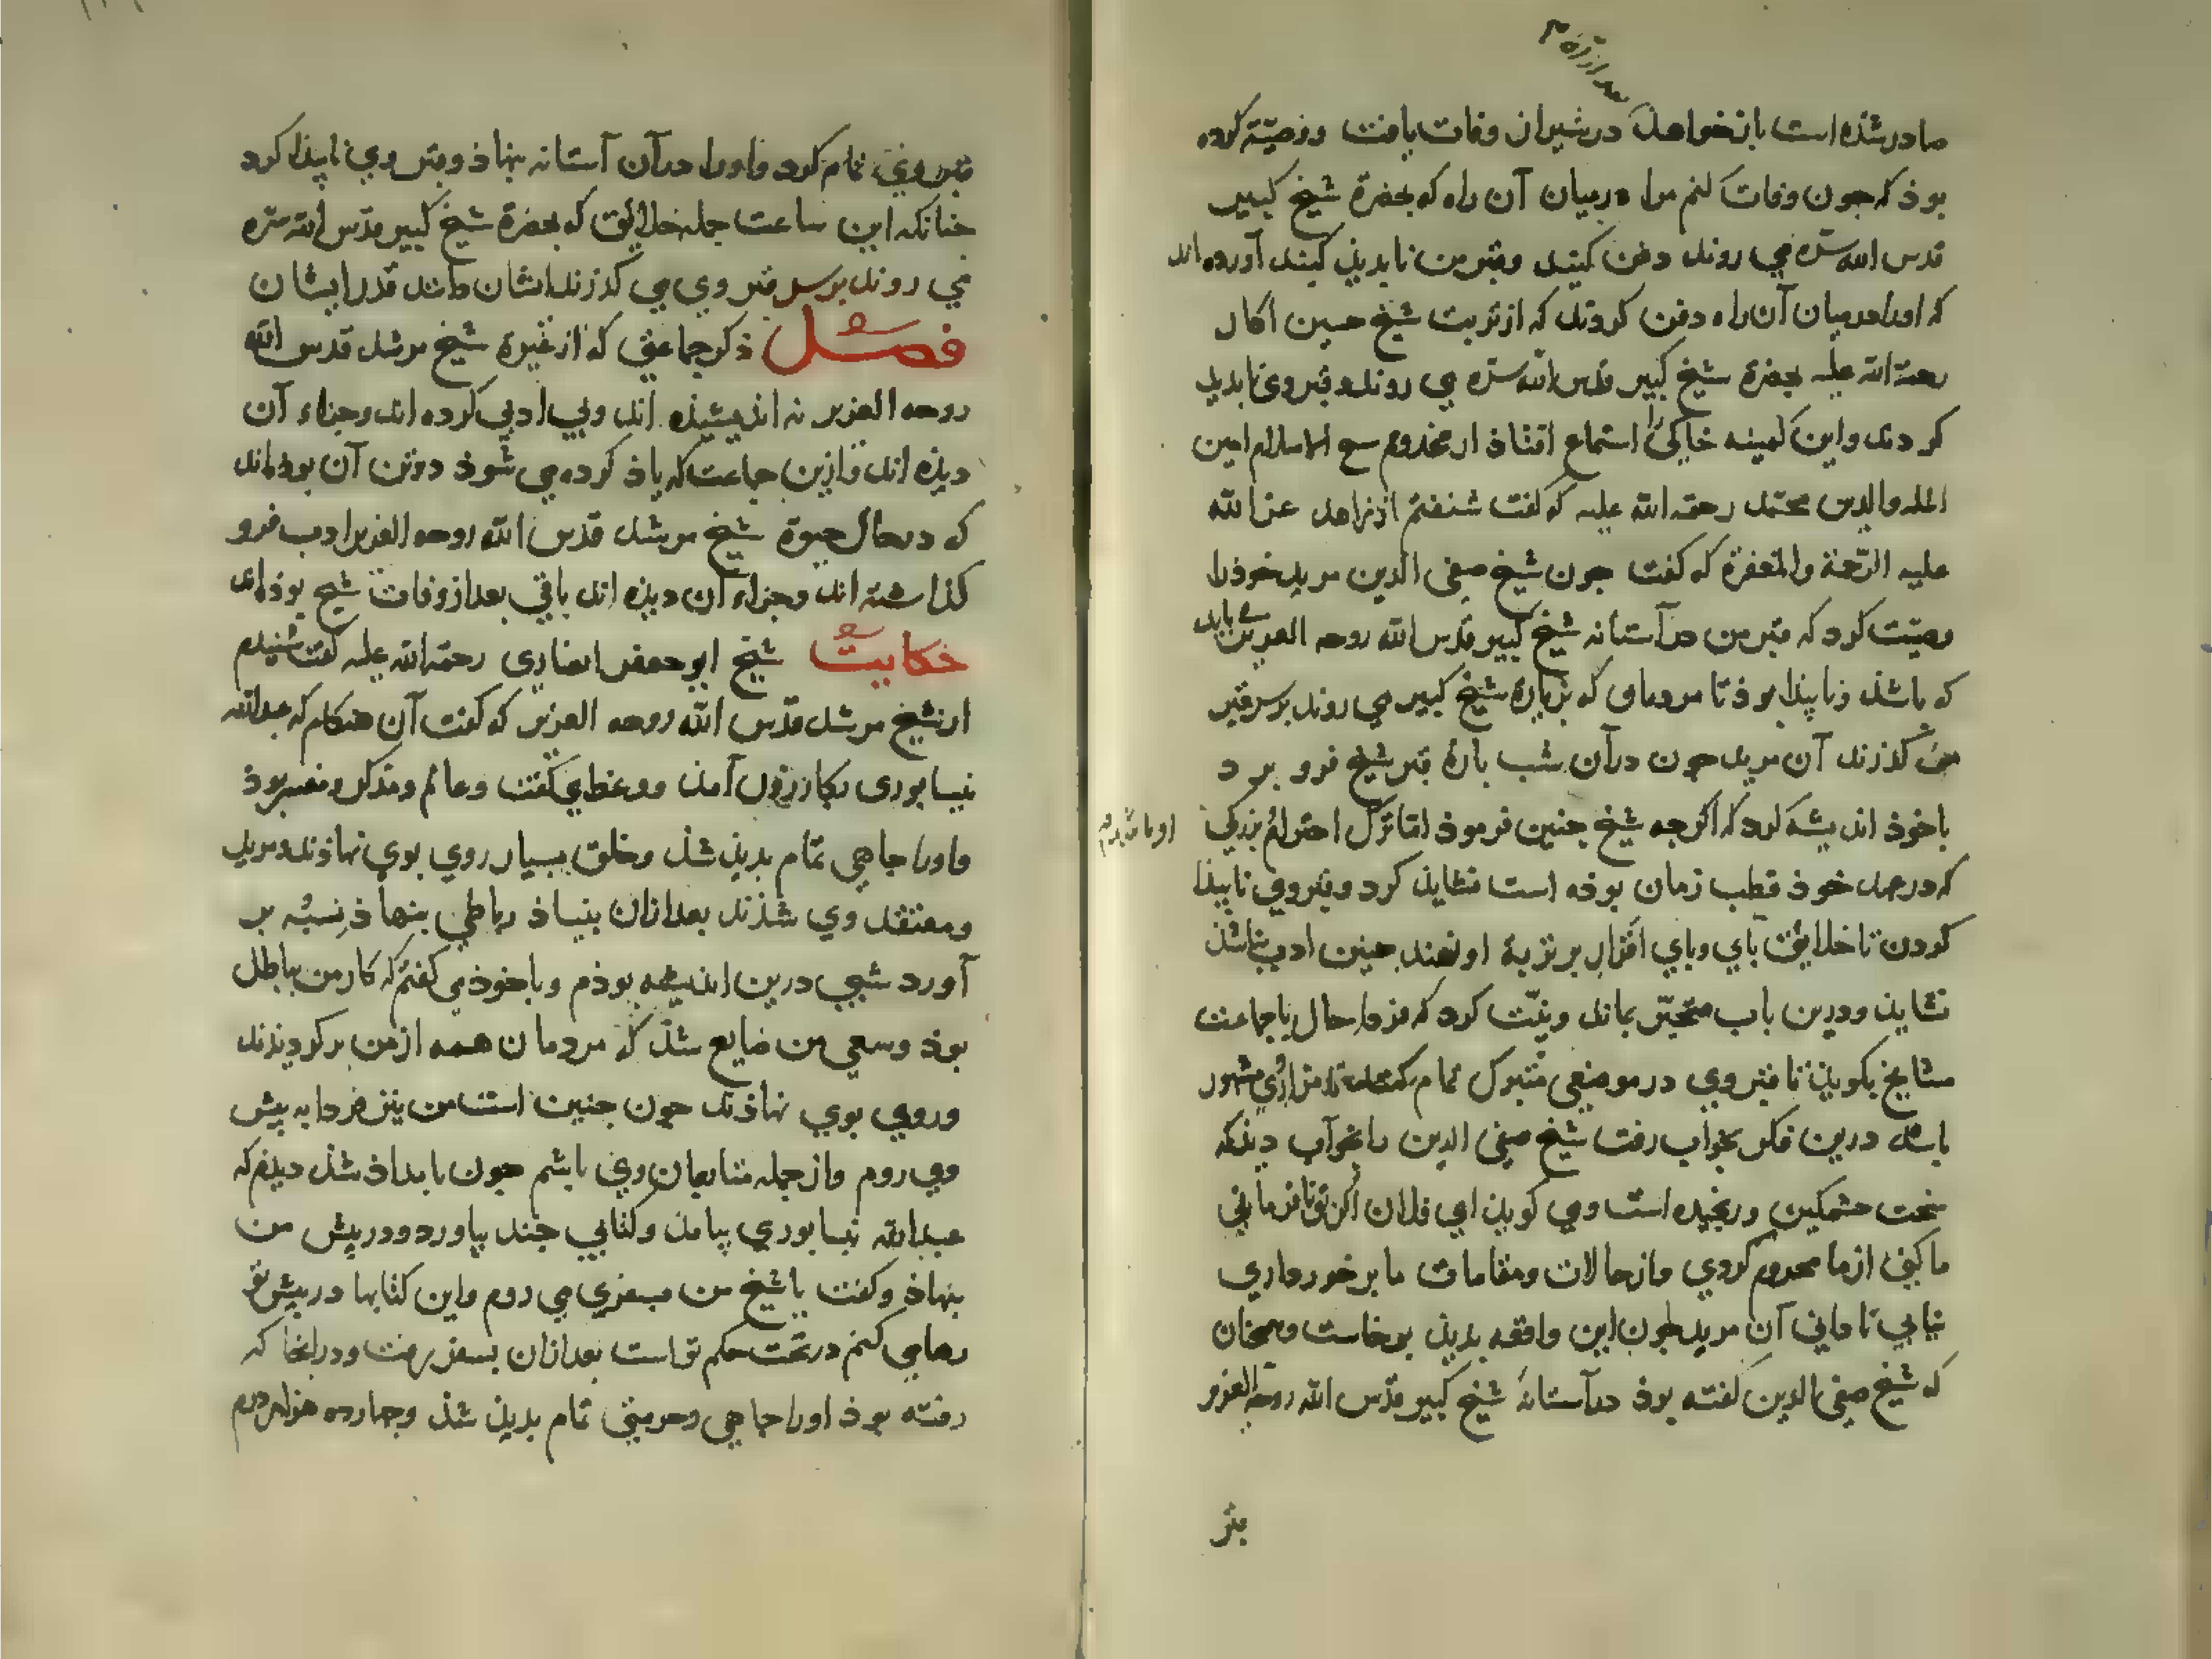 صادر شذه است باز نخواهذ در شیراز وفات یافت و وصیّت کرده
بوذ که جون وفات کنم مرا درمیان آن راه که بحضرة شیخ کبیر
قدس الله سره می روند دفن کنید وقبر من نابدیذ کنید آورده اند
که او را درمیان آن راه دفن کردند که از تربت شیخ حسین اکار
رحمة الله علیه بحضرة شیخ کبیر قدس الله سره می روند وقبر وی نابدید
کردند واین کمینه خاکی را استماع افتاذ از مخدوم شیخ الاسلام امین
المله والدین محمد رحمة الله علیه که گفت شنفتم از زاهد عز الله
علیه الرحمة والمغفرة که گفت جون شیخ صفی الدین مرید خوذ را
وصیّت کرد که قبر من در آستانه شیخ کبیر قدس الله روحه العزیز می باید
که باشذ وناپیذا بوذ تا مردمانی که بزیارة شیخ کبیر می روند بر سر قبر
من گذرند آن مرید جون در آن شب بارهٔ قبر شیخ فرو برد
باخوذ اندیشه کرد که اگرجه شیخ جنین فرموذ اما ترک احترام بزرکی
که در عهد خوذ قطب زمان بوذه است نشایذ کرد وقبر وی ناپیذا
کردن تا خلایق بای وبای افزار بر تربهٔ او نهند جنین ادب نباشذ
نشایذ ودرین باب متحیّر بماند ونیّت کرد که فردا حال با جماعت
مشایخ بکویذ تا قبر وی در موضعی متبرک تمام کنند تا مزار وی مشهور
باشذ درین فکر بخواب رفت شیخ صفی الدین را بخواب دیذ که
سخت خشمگین ورنجیده است ومی کویذ ای فلان اکر تو نافرمانی
ما کنی از ما محروم کردی واز حالات ومقامات ما برخورداری
نیابی تا دانی آن مرید جون این واقعه بدیذ برخاست وهمجنان
که شیخ صفی الدین گفته بوذ در آستانهٔ شیخ کبیر قدس الله روحه العزیز
قبر وی تمام کرد واو را در آن آستانه بنهاذ وقبر وی ناپیذا کرد
جنانکه این ساعت جمله خلایق که بحضرة شیخ کبیر قدّس الله سره
می روند بر سر قبر وی می گذرند ایشان دانند قدر ایشان
فصل ذکر جماعتی که از غیرة شیخ مرشد قدس الله
روحه العزیز نه اندیشیذه اند وبی ادبی کرده اند وجزاء آن
دیذه اند وازین جماعت که یاذ کرده می شوذ دو تن آن بوذه اند
که در حال حیوة شیخ مرشد قدّس الله روحه العزیز ادب فرو
گذاشته اند وجزاء آن دیذه اند باقی بعد از وفات شیخ بوذه اند
حکایت شیخ ابو جعفر انصاری رحمة الله علیه گفت شنیدم
از شیخ مرشد قدّس الله روحه العزیز که گفت آن هنکام که عبدالله
نیسابوری بکازرون آمذ ووعظ می گفت وعالم ومذکر ومفسر بوذ
واو را جاهی تمام بدیذ شذ وخلق بسیار روی بوی نهاذند ومرید
ومعتقد وی شذند بعد از آن بنیاذ رباطی بنهاذ بر
آورد شبی درین اندیشه بوذم وباخوذ می گفتم که کار من باطل
بوذ وسعی من ضایع شذ که مردمان همه از من برکردیذند
وروی بوی نهاذند جون جنین است من نیز فردا به پیش
وی روم واز جمله متابعان وی باشم جون بامداذ شذ دیذم که
عبدالله نیسابوری بیامذ وکتابی جند بیاورد ودر پیش من
بنهاذ وگفت یا شیخ من بسفری می روم واین کتابها در پیش تو
رها می کنم در تحت حکم تو است بعد از آن بسفر رفت ودر آنجا که
رفته بوذ او را جاهی وحرمتی تمام بدیذ شذ وجهارده هزار درم